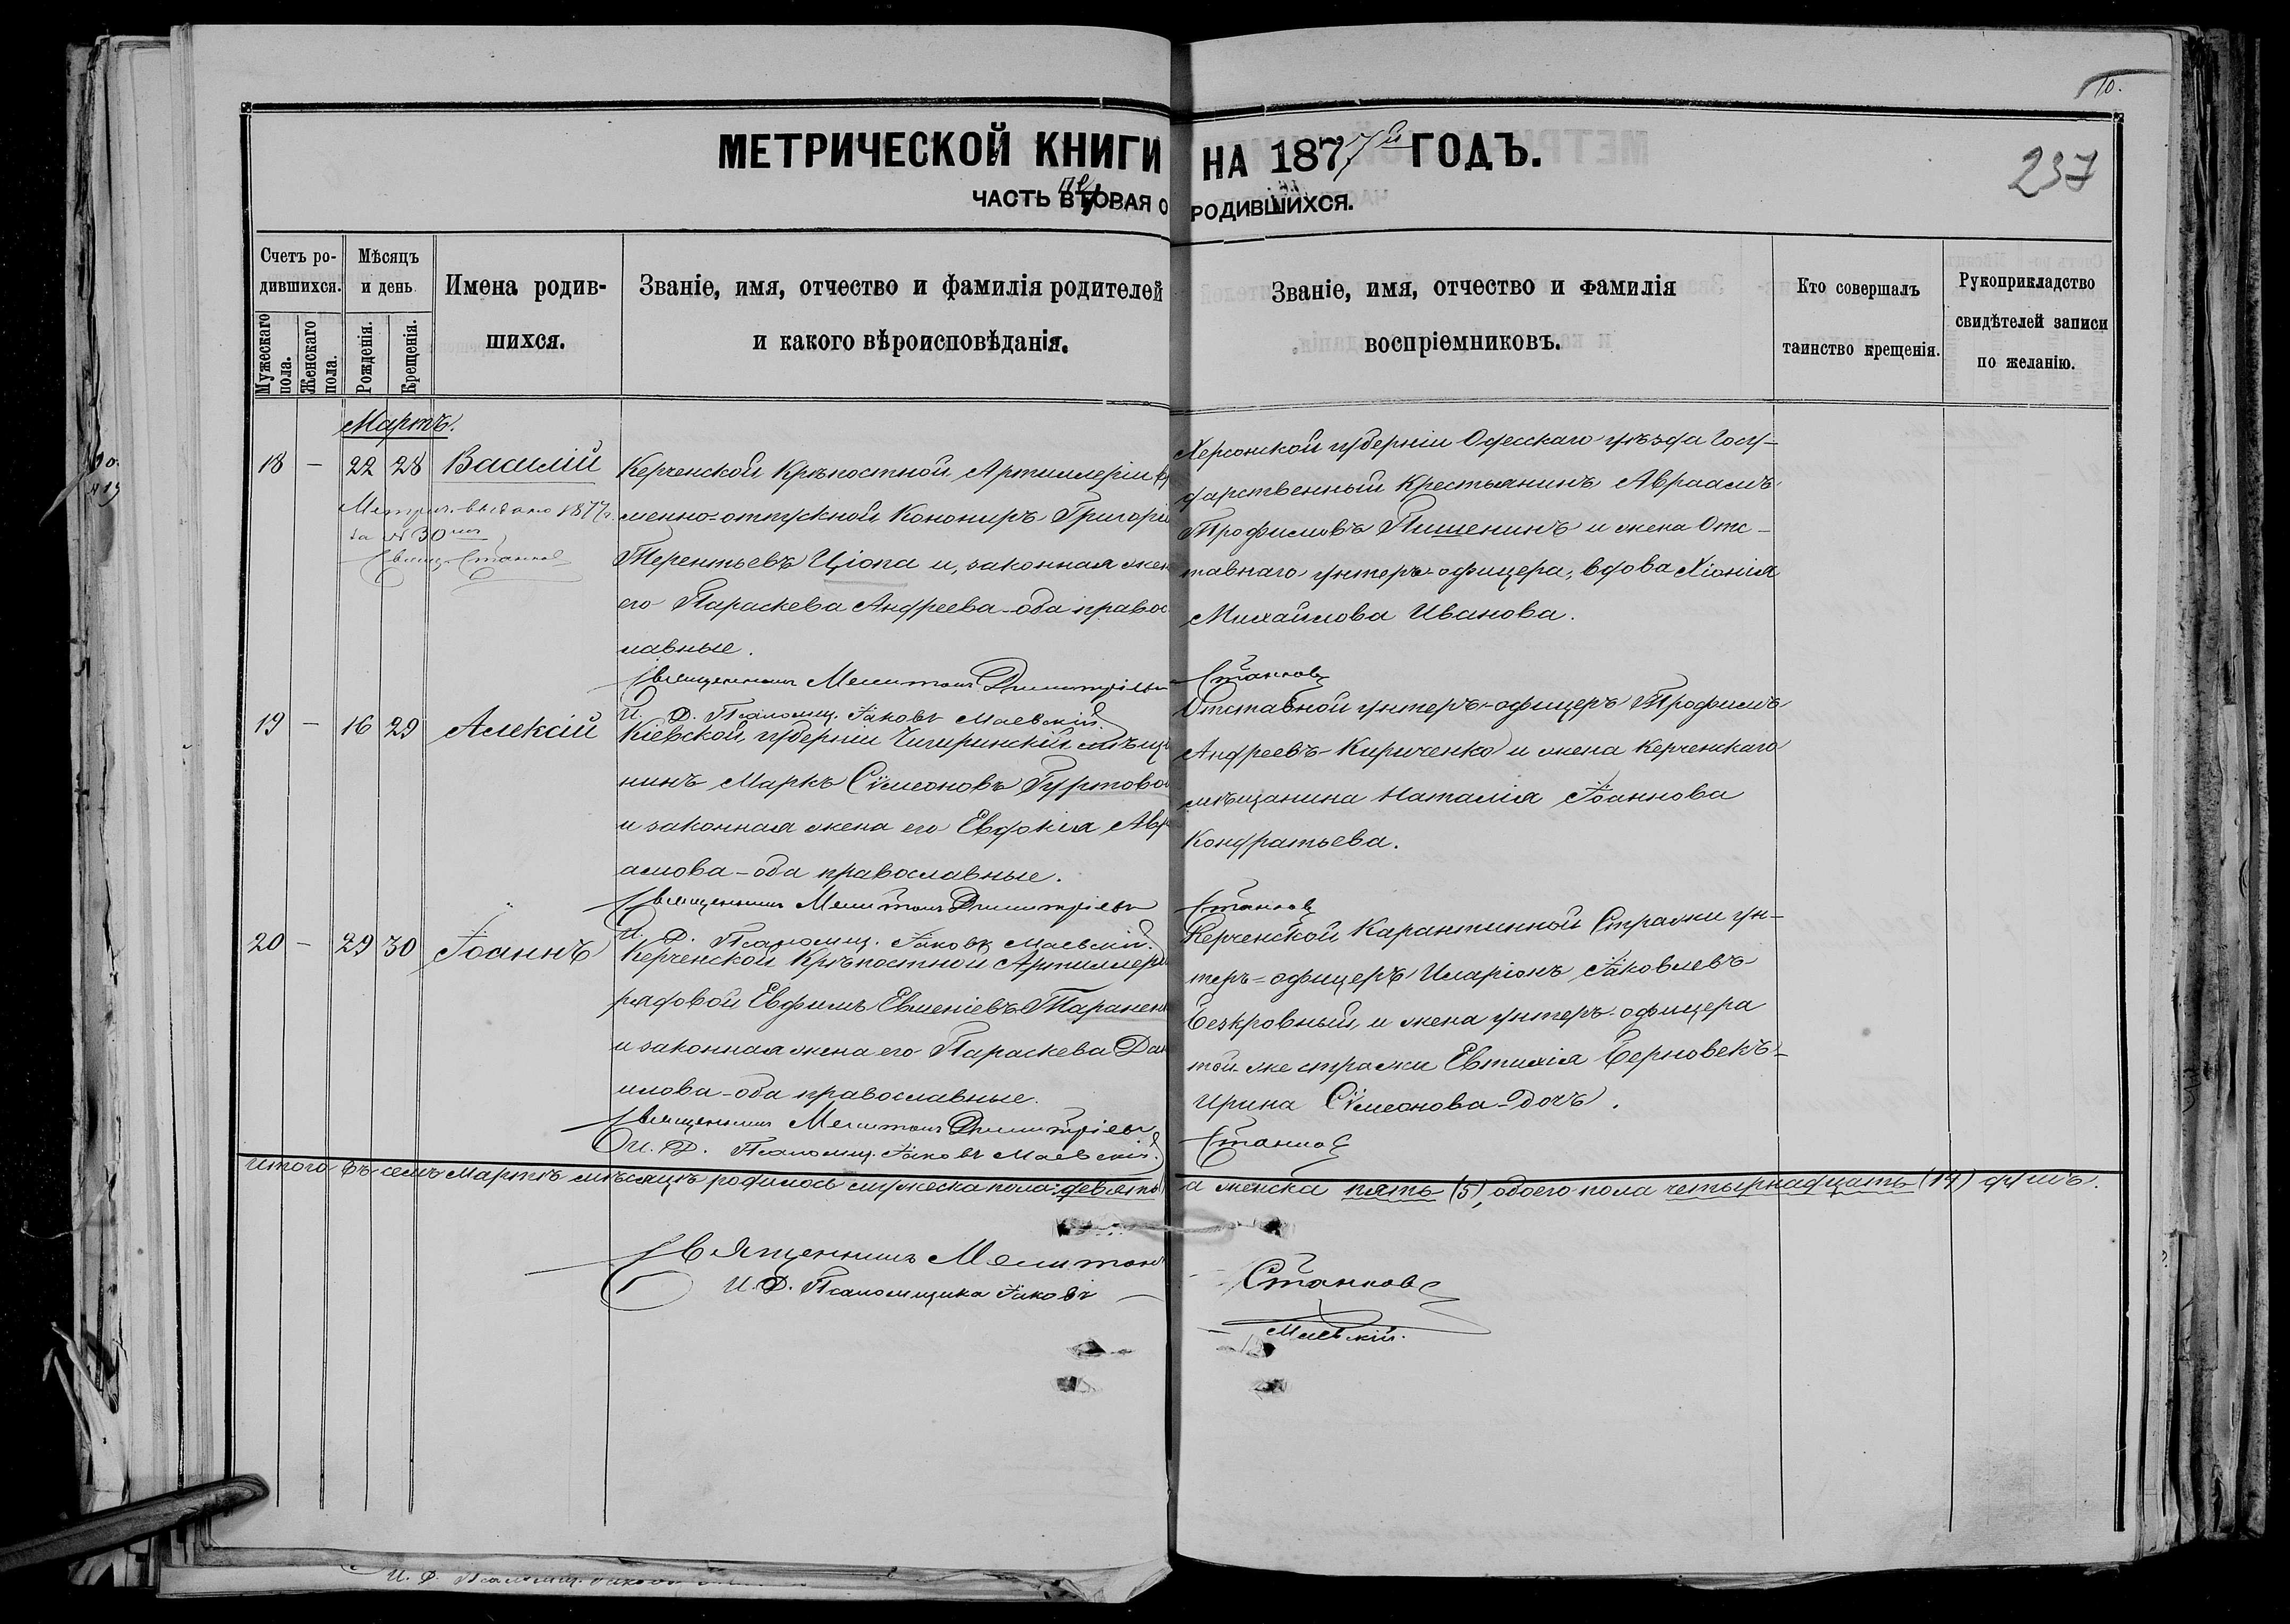 10.
237
МЕТРИЧЕСКОЙ КНИГИ НА 1877й ГОДЪ.
ЧАСТЬ ВТОРАЯ О РОДИВШИХСЯ.
Счетъ ро-
дившихся.
Мужескаго пола.
Женскаго пола.
Мѣсяцъ
и день
Рожденія.
Крещенія.
Имена родив-
шихся.
Званіе, имя, отчество и фамилія родителей
и какого вѣроисповѣданія.
Званіе, имя, отчество и фамилія
воспріемниковъ.
Кто совершалъ
таинство крещенія.
Рукоприкладство
свидѣтелей записи
по желанію.
Мартъ.
18 – 22 28 Василій
Метрич. выдано 1877г.
за № 30
Свящ. Станков
Керченской Крѣпостной Артиллеріи вр
менно-отпускной Конониръ Григорій
Терентьевъ Ціопа и, законная жен
его Параскева Андреева - оба правос
лавные.
Херсонской губерніи Одесскаго уѣзда Госу-
дарственный Крестьянинъ Авраамъ
Трофимовъ Пишенинъ и жена Отс-
тавнаго унтеръ-офицера, вдова Хіонія
Михайлова Иванова.
Священникъ Мелитонъ Димитріевъ Станковъ
И. Д. Псаломщ. Іаковъ Маевскій.
19 – 16 29 Алексій
Кіевской губерніи Чигиринскій мѣща
нинъ Маркъ Сѵмеоновъ Гуртовой
и законная жена его Евдокія Авр
амова - оба православные.
Отставной унтеръ-офицеръ Трофимъ
Андреевъ Кириченко и жена Керченскаго
мѣщанина Наталія Іоаннова
Кондратьева.
Священникъ Мелитонъ Димитріевъ Станковъ
И. Д. Псаломщ. Іаковъ Маевскій.
20 – 29 30 Іоаннъ
Керченской Крѣпостной Артиллеріи
рядовой Евфимъ Евменіевъ Таранен
и законная жена его Параскева Дан
илова - оба православные.
Керченской Карантинной Стражи ун-
теръ-офицеръ Иларіонъ Іаковлевъ
Безкровный, и жена унтеръ-офицера
той-же стражи Евтихія Черновекъ-
Ирина Сѵмеонова-дочь.
Священникъ Мелитонъ Димитріевъ Станковъ
И. Д. Псаломщ. Іаковъ Маевскій.
Итого въ семъ Мартѣ мѣсяцѣ родилось мужеска пола: девять а женска пять (5), обоего пола четырнадцать (14) душъ.
Священникъ Мелитонъ Станковъ
И. Д. Псаломщика Іаковъ Маевскій.
И. Д. Псаломщ. Іаковъ